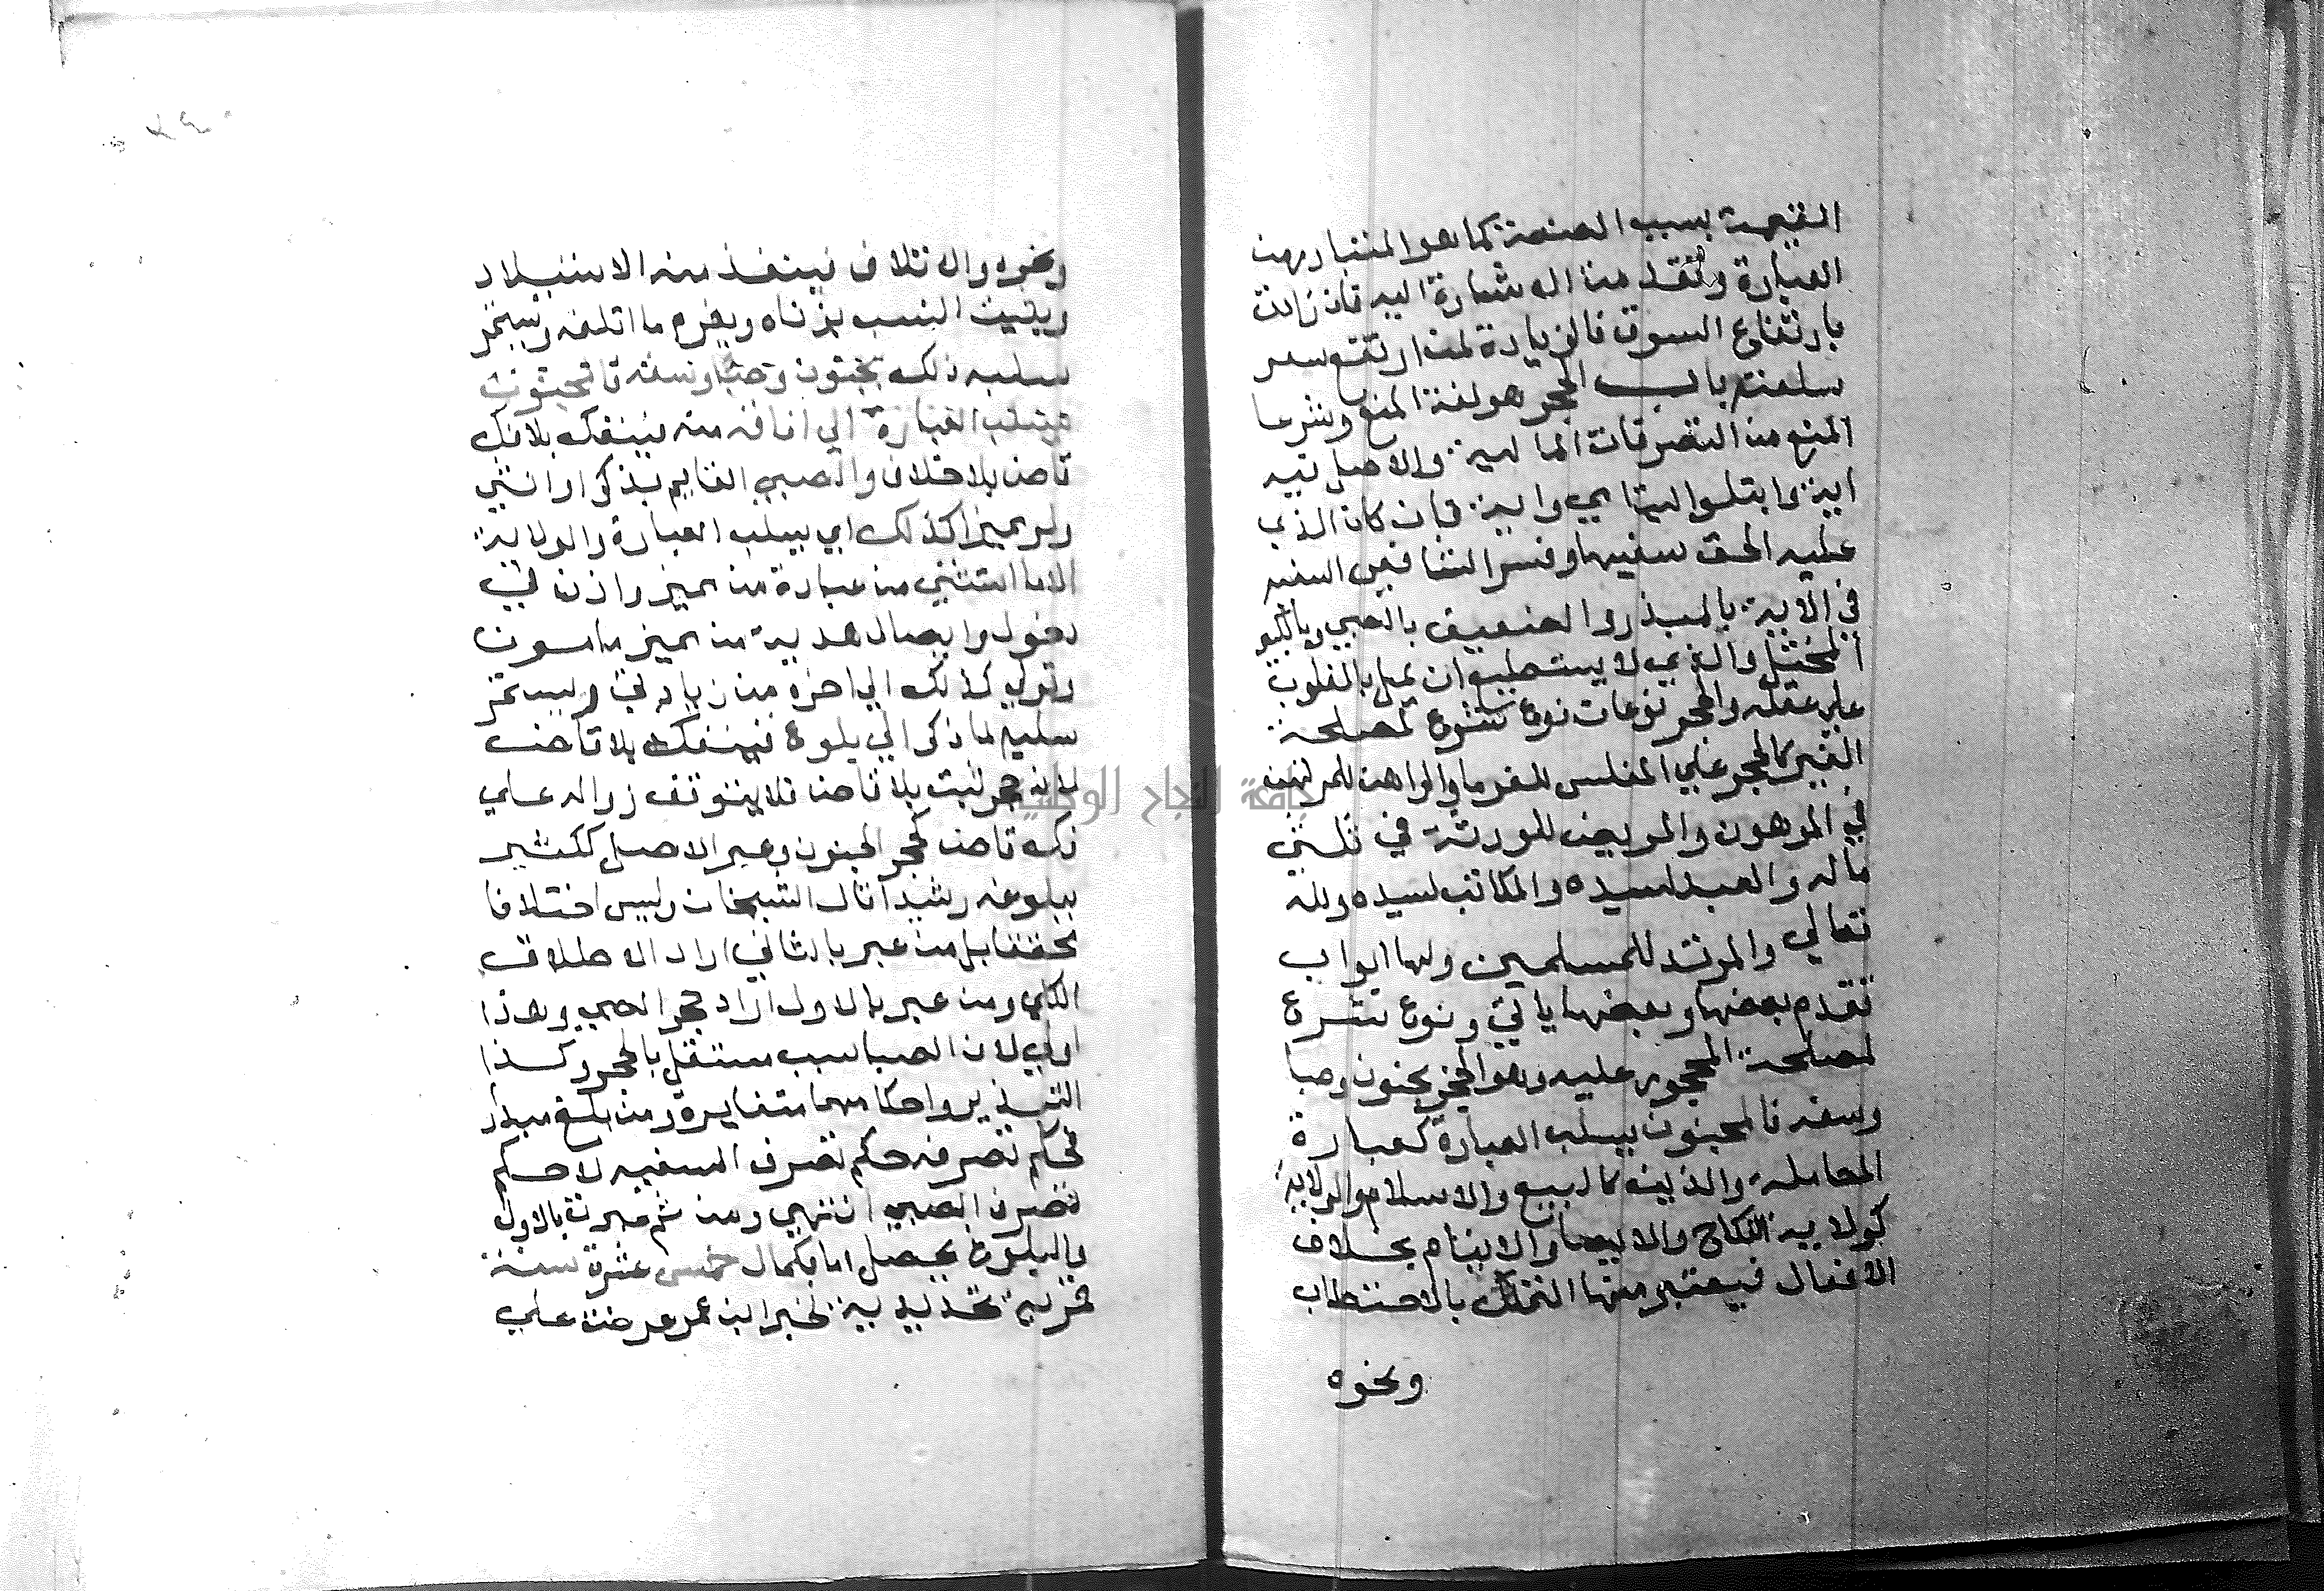 القيمة بسبب الصنعة كما هو المتبادر من
العبارة وتقدمت الاشارة اليه فان زادت
بارتفاع السوق فالزيادة لمن ارتفع سعر
سلعته باب الحجر هو لغة المنع وشرعا
المنع من التصرفات المالية والاصل فيه
اية وابتلوا اليتامي واية فان كان الذي
عليه الحق سفيها وفسر الشافعي السفيه
في الاية بالمبذر والضعيف بالصبي وبالكبير
المختل والذي لا يستطيع ان يمل بالمغلوب
علي عقله والحجر نوعان نوع شرع لمصلحة
الغير كالحجر علي المفلس للغرما والراهن للمرتهن
في المرهون والمريض للورثة في ثلثي
ماله والعبد لسيده والمكاتب لسيده ولله
تعالي والمرتد للمسلمين ولها ابواب
تقدم بعضها وبعضها ياتي ونوع شرع
لمصلحة المحجور عليه وهو الحجر بجنون وصبا
وسفه فالجنون يسلب العبارة كعبارة
المعاملة والدين كالبيع والاسلام والولاية
كولاية النكاح والايصا والايتام بخلاف
الافعال فيعتبر منها التملك بالاحتطاب
ونحوه
ونحوه والاتلاف فينفذ منه الاستيلاد
ويثبت النسب بزناه ويغرم ما اتلفه ويستمر
سلبه ذلك بجنون وصبا وسفه فالجنون
يسلب العبارة الي افاقة منه فينفك بلا فك
قاض بلا خلاف والصبي القايم بذكر او انثي
ولو مميزا كذلك اي يسلب العبارة والولاية
الا ما استثني من عبادة من مميز واذن في
دخول وايصال هدية من مميز مامون
وقولي كذلك الي اخره من زيادتي ويستمر
سلبه لما ذكر الي بلوغ فينفك بلا قاض
لانه حجر ثبت بلا قاض فلا يتوقف زواله علي
فك قاض كحجر الجنون وعبر الاصل ككثير
ببلوغه رشيدا قال الشيخان وليس اختلافا
محققا بل من عبر بالثاني اراد الاطلاق
الكلي ومن عبر بالاول اراد حجر الصبي وهذا
اولي لان الصبا سبب مستقل بالحجر وكذا
التبذير واحكامهما متغايرة ومن بلغ مبذرا
فحكم تصرفه حكم تصرف السفيه لا حكم
تصرف الصبي انتهي ومن ثم عبرت بالاول
والبلوغ يحصل اما بكمال خمس عشرة سنة
قمرية تحديدية لخبر ابن عمر عرضت علي